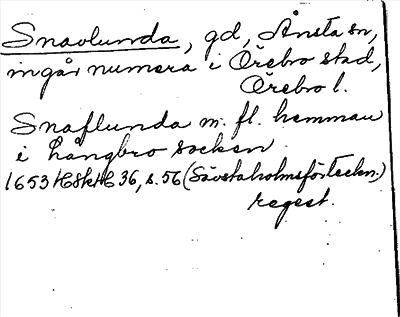 Snavlunda, gd, Ånsta sn,
ingår numera i Örebro stad,
Örebro l.
Snaflunda m. fl. hemman
i Långbro socken.
1653 HSkH 36, s. 56 (Sävstaholmsförteckn.)
regest.